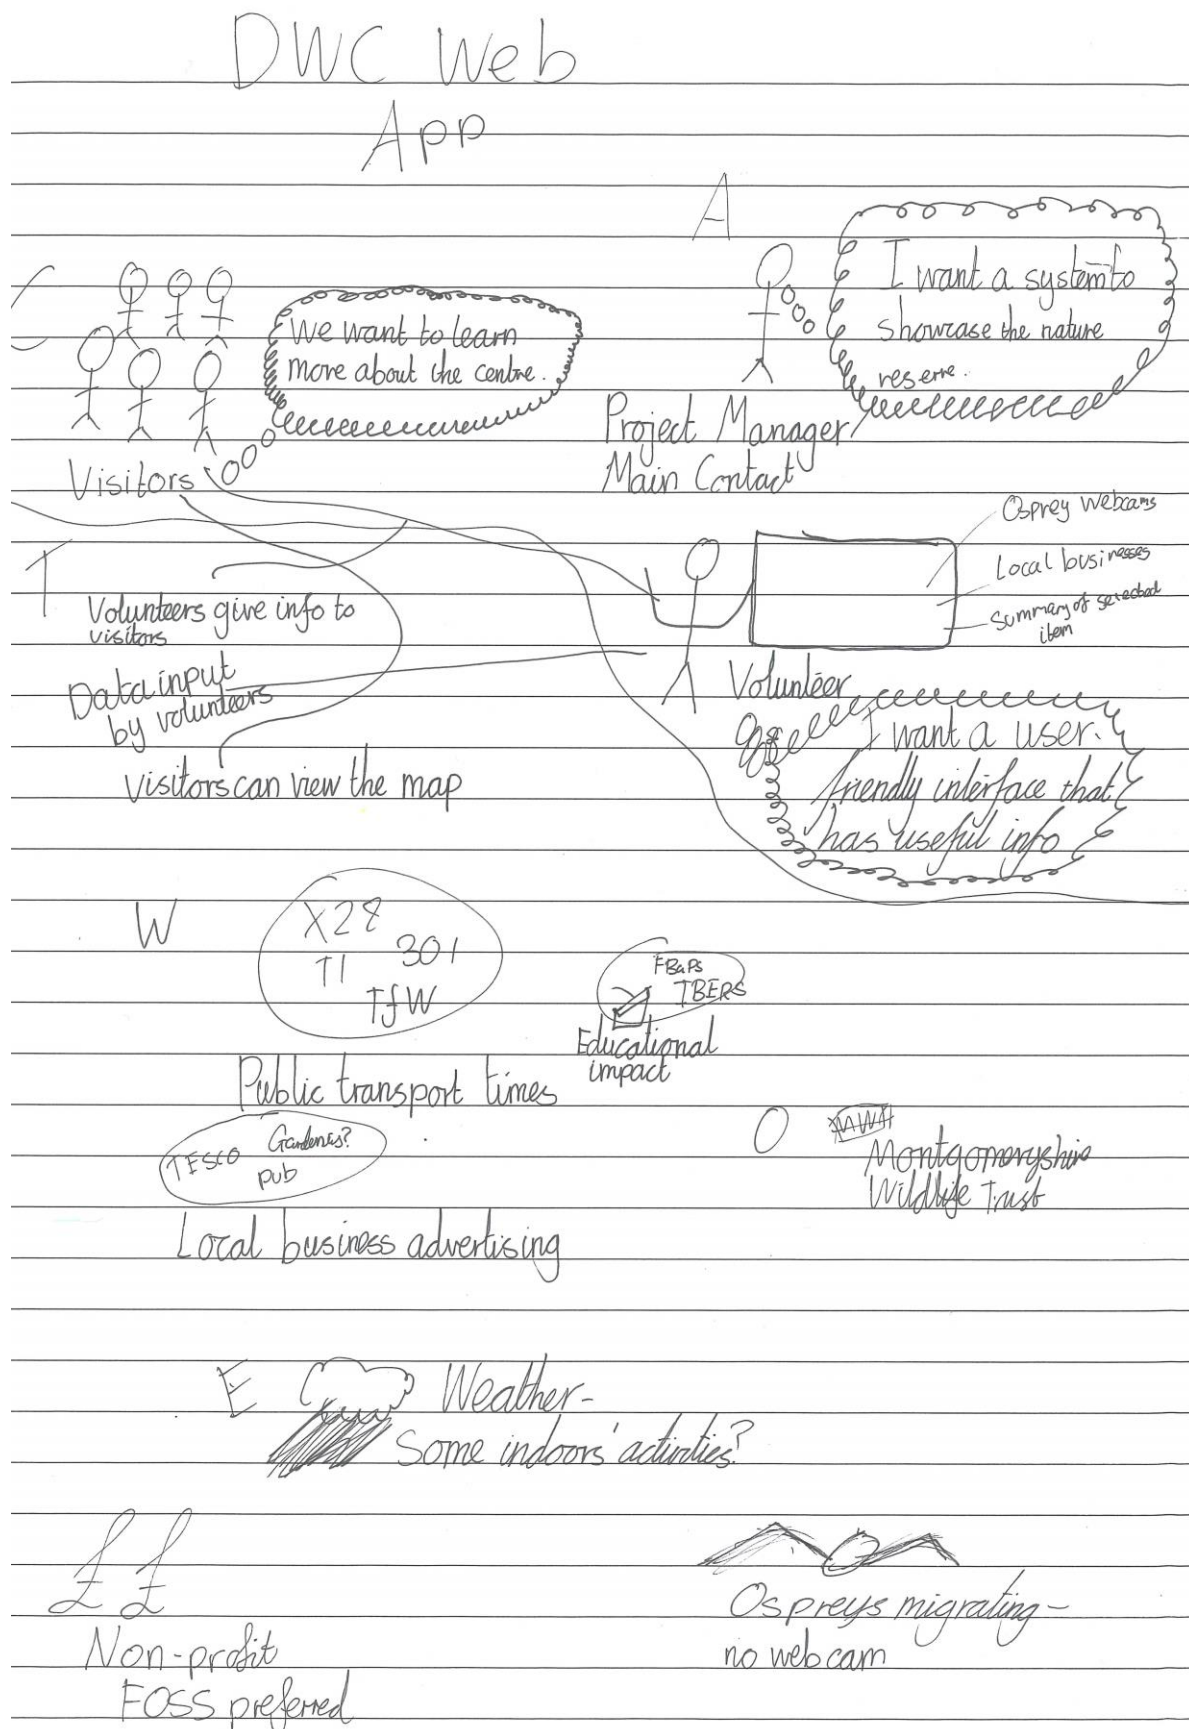 DWC Web
App
A
I want a system to
showcase the nature
reserve.
Project Manager/
Main Contact
C
We want to learn
more about the centre.
Visitors
T
Volunteers give info to
visitors
Data input
by volunteers
Visitors can view the map
Osprey Webcams
Local businesses
Summary of selected
item
Volunteer
I want a user.
friendly interface that
has useful info
W
X28
T1 301
TfW
Public transport times
TBERS
Educational
impact
TESCO
pub
Local business advertising
O
Montgomeryshire
Wildlife Trust
E
Weather-
Some indoors' activities?
££
Non-profit
FOSS preferred
Ospreys migrating-
no webcam